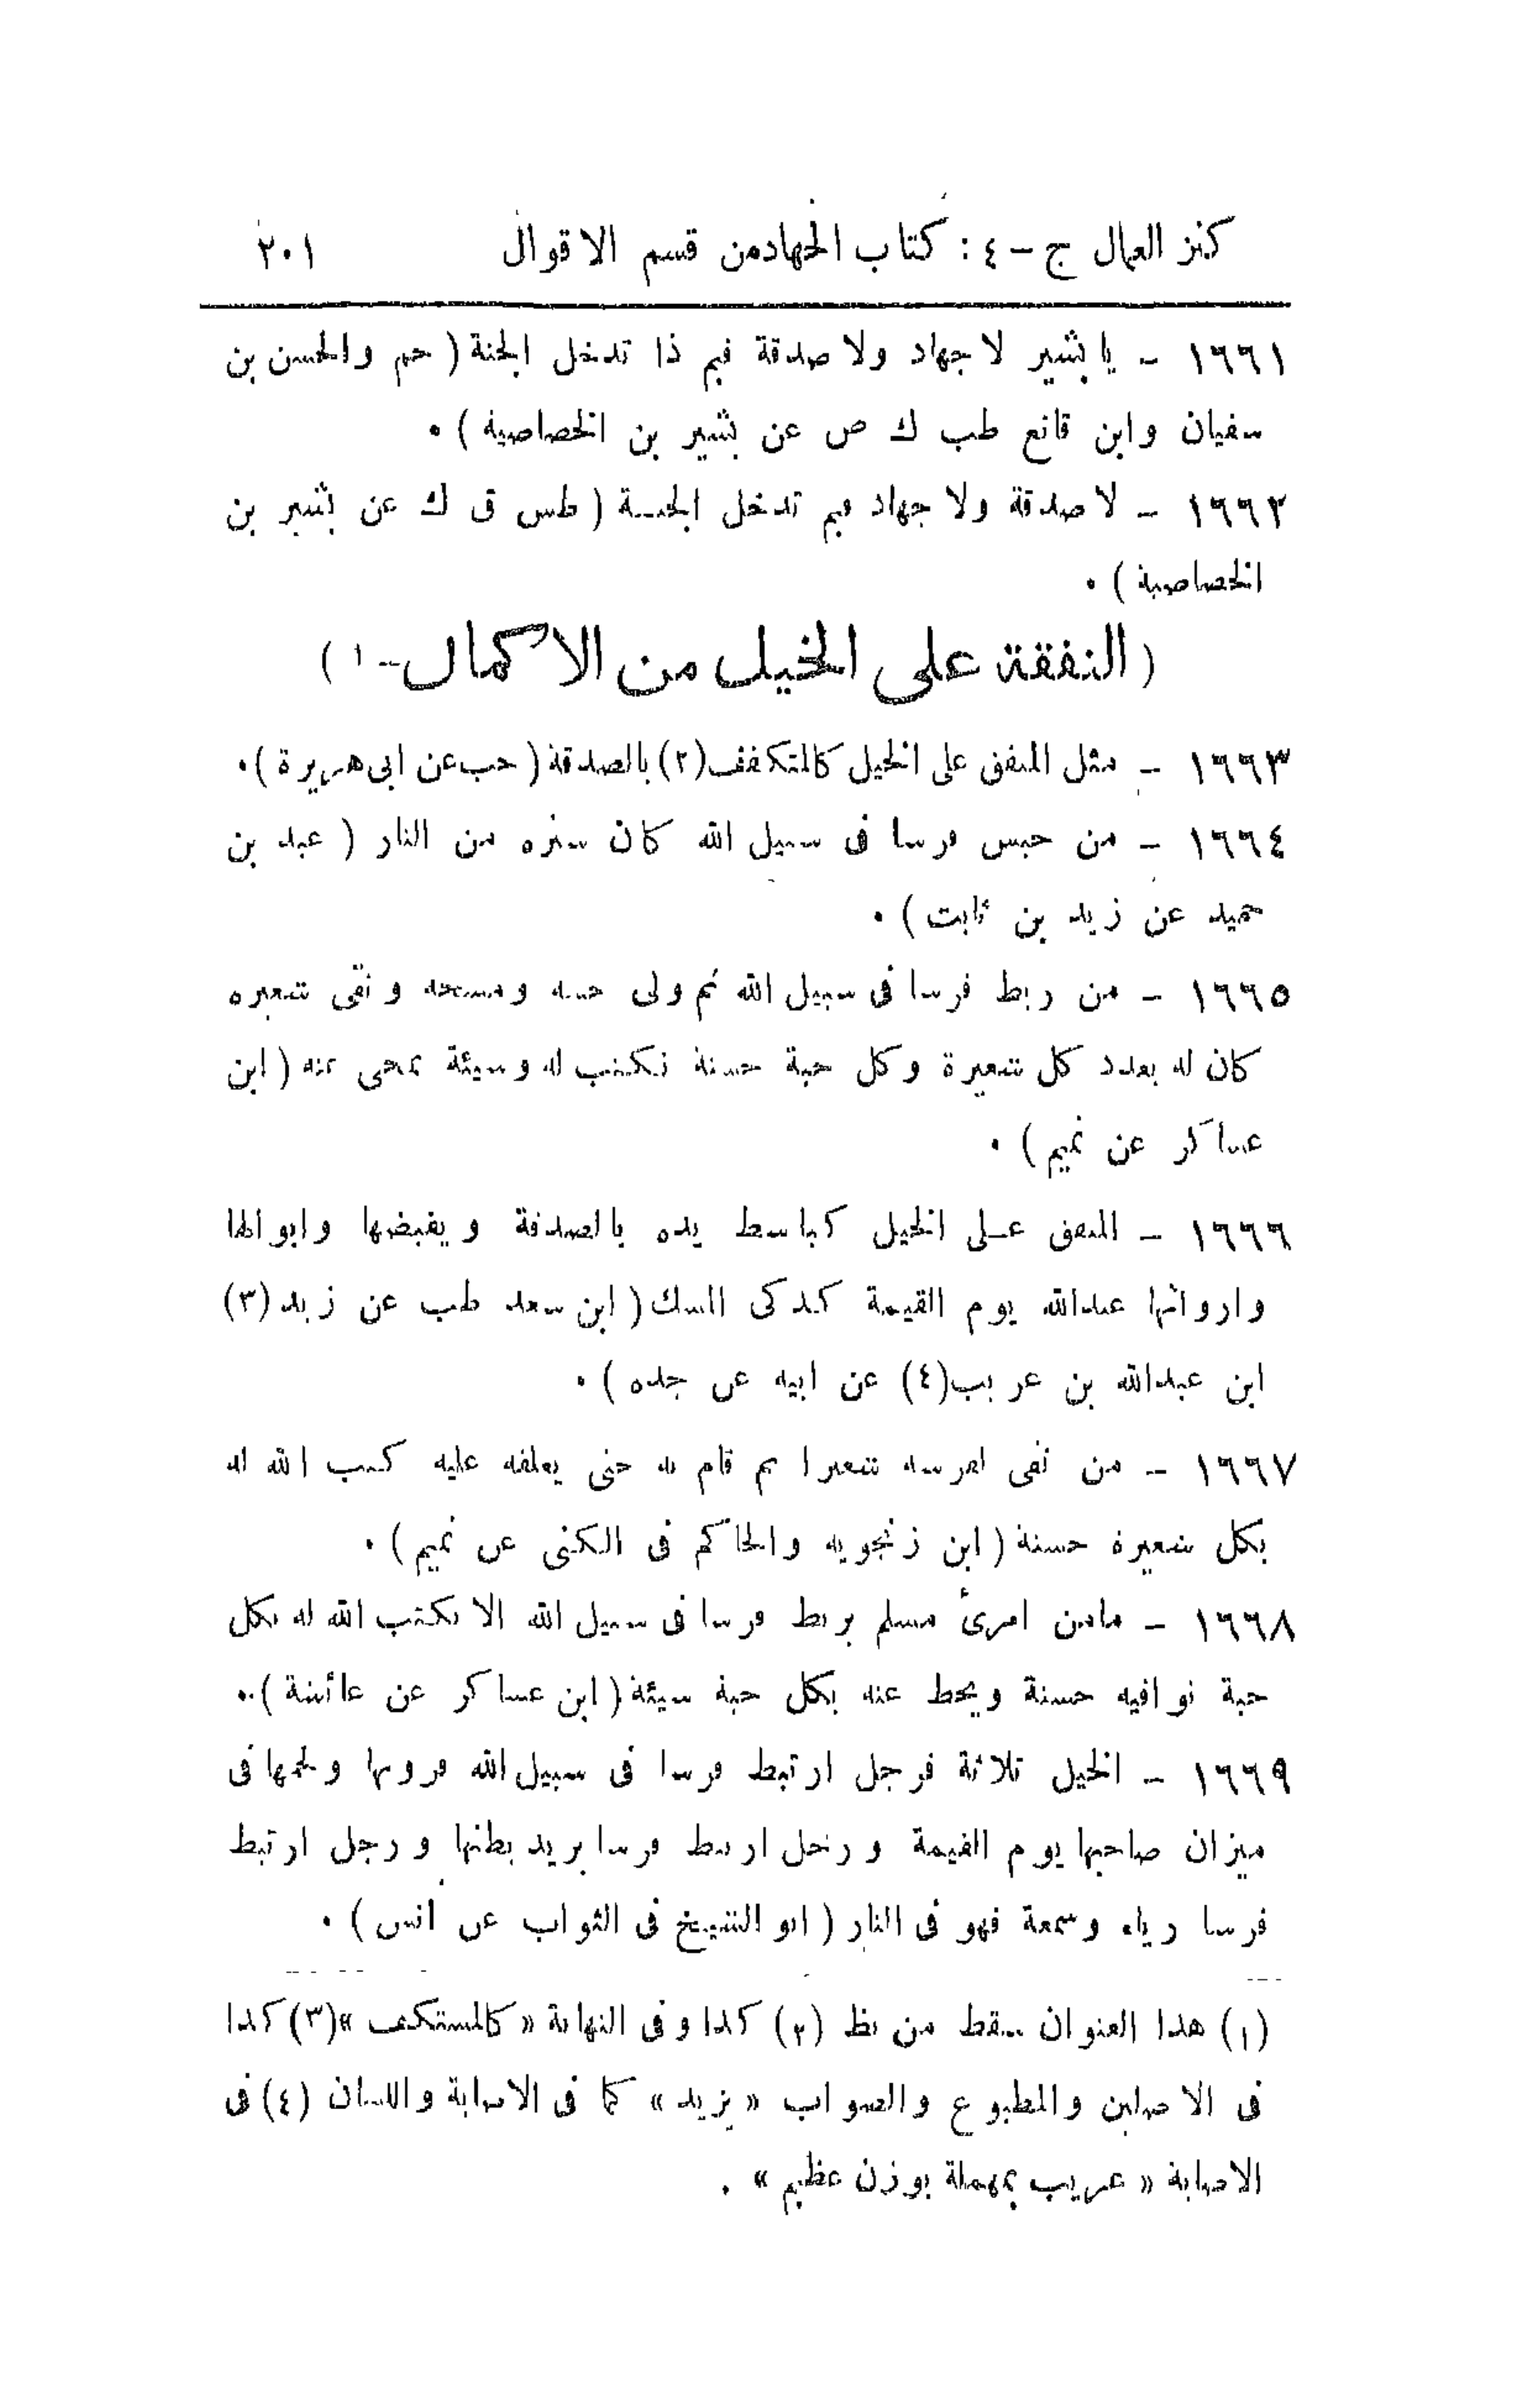 كنز العمال ج - ٤ : كتاب الجهاد من قسم الاقوال ٢٠١
١٦٦١ - يا بشير لا جهاد ولا صدقة فبم ذا تدخل الجنة ( حم والحسن بن
سفيان وابن قانع طب ك ص عن بشير بن الخصاصية ) ٠
١٦٦٢ - لا صدقة ولا جهاد فبم تدخل الجنــة ( طس ق ك عن بشير بن
الخصاصية ) ٠
( النفقة على الخيل من الاكمال - ١ )
١٦٦٣ - مثل المنفق على الخيل كالمتكفف (٢) بالصدقة ( حب عن ابى هريرة ) ٠
١٦٦٤ - من حبس فرسا فى سبيل الله كان ستره من النار ( عبد بن
حميد عن زيد بن ثابت ) ٠
١٦٦٥ - من ربط فرسا فى سبيل الله ثم ولى حسه ومسحه ونقى شعيره
كان له بعدد كل شعيرة وكل حبة حسنة تكتب له وسيئة تمحى عنه ( ابن
عساكر عن تميم ) ٠
١٦٦٦ - المنفق عــلى الخيل كباسط يده بالصدقة ويقبضها وابوالها
وارواثها عندالله يوم القيمة كذكى المسك ( ابن سعد طب عن زيد (٣)
ابن عبدالله بن عريب (٤) عن ابيه عن جده ) ٠
١٦٦٧ - من نقى لفرسه شعيرا ثم قام به حتى يعلفه عليه كتب الله له
بكل شعيرة حسنة ( ابن زنجويه والحاكم فى الكنى عن تميم ) ٠
١٦٦٨ - مامن امرئ مسلم يربط فرسا فى سبيل الله الا يكتب الله له بكل
حبة نوافيه حسنة ويحط عنه بكل حبة سيئة ( ابن عساكر عن عائشة ) ٠
١٦٦٩ - الخيل ثلاثة فرجل ارتبط فرسا فى سبيل الله فروثها ولحمها فى
ميزان صاحبها يوم القيمة ورجل ارتبط فرسا يريد بطنها ورجل ارتبط
فرسا رياء وسمعة فهو فى النار ( ابو الشيخ فى الثواب عن انس ) ٠
(١) هذا العنوان سقط من نظ (٢) كذا وفى النهاية « كالمستكف » (٣) كذا
فى الاصلين والمطبوع والصواب « يزيد » كما فى الاصابة واللسان (٤) فى
الاصابة « عريب بمهملة بوزن عظيم » .